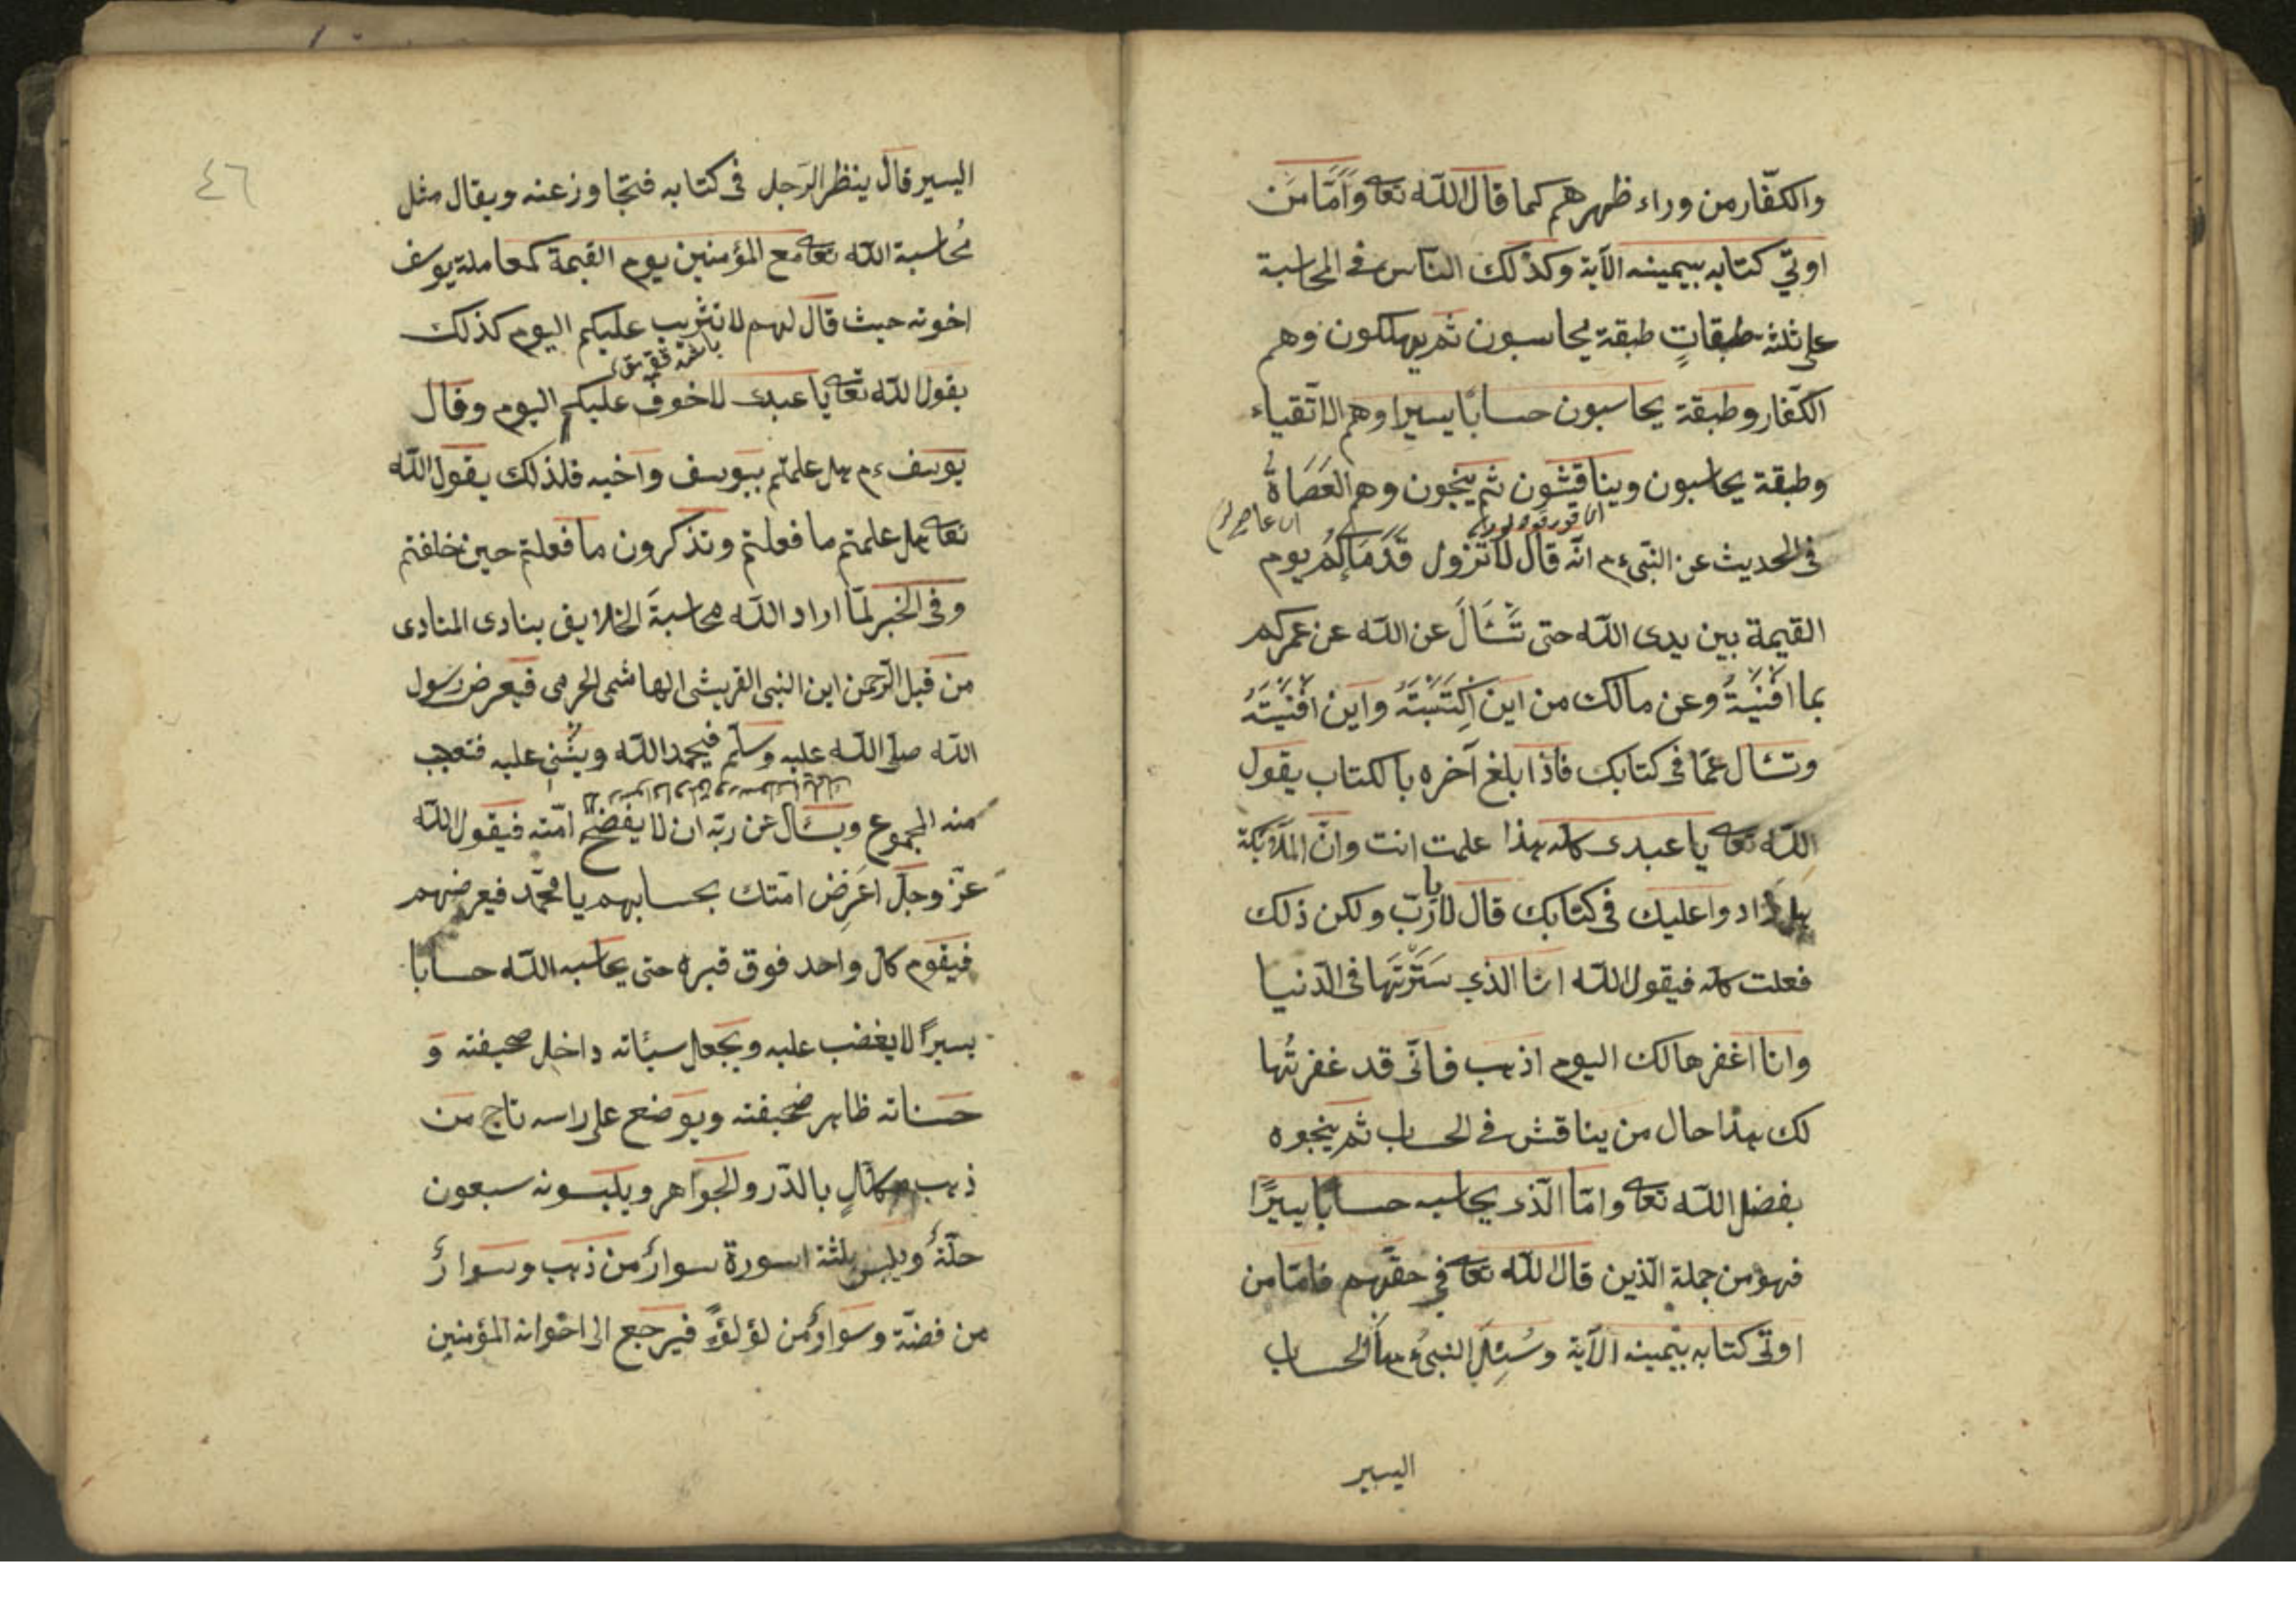 والكفّار من وراء ظهرهم كما قال اللّه تعا وَاَمَّا مَن
اوتي كتابه بيمينه الآية وكذلك النّاس فى المحاسبة
على ثلثة طبقاتٍ طبقة يحاسبون ثم يهلكون وهم
الكفّار وطبقة يحاسبون حسابًا يسيرا وهم الاتّقياء
وطبقة يحاسبون ويناقشون ثم ينجون وهم العَصَاةُ
فى الحديث عن النّبىءم انّه قال لَا تزول قَدَمَاكُمْ يوم
القيمة بين يدى اللّه حتى تُسْئَالَ عن اللّه عن عمركم
بما افْنَيْتَهُ وعن مالك من اين اِكْتَسَبْتَهُ واين افْنَيْتَهُ
وتسئال عمّا فى كتابك فاذا بلغ آخره بالكتاب يقول
اللّه تعا يا عبدى كله هذا علمت انت وانّ الملآئكة
هل زادوا عليك فى كتابك قال لا يا ربّ ولكن ذلك
فعلت كله فيقول اللّه انا الذي سَتَرْتَهَا فى الدّنيا
وانا اغفرها لك اليوم اذهب فانّى قد غفرتُها
لك هذا حال من يناقش فى الحساب ثم ينجوه
بفضل اللّه تعا وامّا الّذى يحاسب حسابًا يسيرًا
فهو من جملة الّذين قال اللّه تعا فى حقّهم فامّا من
اوتى كتابه بيمينه الآية وسُئِلَ النبىءم ما الحساب
اليسير
٤٦
اليسير قال ينظر الرّجل فى كتابه فتجاوز عنه ويقال مثل
مُحاسبة اللّه تعا مع المؤمنين يوم القيمة كمعاملة يوسف
اخوته حيث قال لهم لا تثريب عليكم اليوم كذلك
يقول اللّه تعا يا عبدى لا خوف عليكم اليوم وقال
يوسفءم هل علمتم بيوسف واخيه فلذلك يقول اللّه
تعا هل علمتم ما فعلتم وتذكرون ما فعلتم حين خلفتم
وفى الخبر لمّا اراد اللّه محاسبةَ الخلايق ينادى المنادى
من قبل الرّحمن اين النبى القريشى الهاشمى الحرمى فيعرض رسول
اللّه صلّى اللّه عليه وسلّم فيحمد اللّه ويثنى عليه فتعجب
منه المجموع ويسئال عن ربّه ان لا يفضح امّته فيقول اللّه
عزّ وجلّ اَعْرِض امّتك بحسابهم يا محمّد فيعرضهم
فيقوم كل واحد فوق قبره حتى يحاسبه اللّه حسابا
يسيرًا لا يغضب عليه ويجعل سيئاته داخل صحيفته و
حسناته ظاهر صحيفته ويوضع على راسه تاج من
ذهب مكلّلٍ بالدّر والجواهر ويلبسونه سبعون
حلّة ويلبس ثلثة اسورة سوار من ذهب وسوار
من فضّة وسوار من لؤلؤ فيرجع الى اخوانه المؤمنين